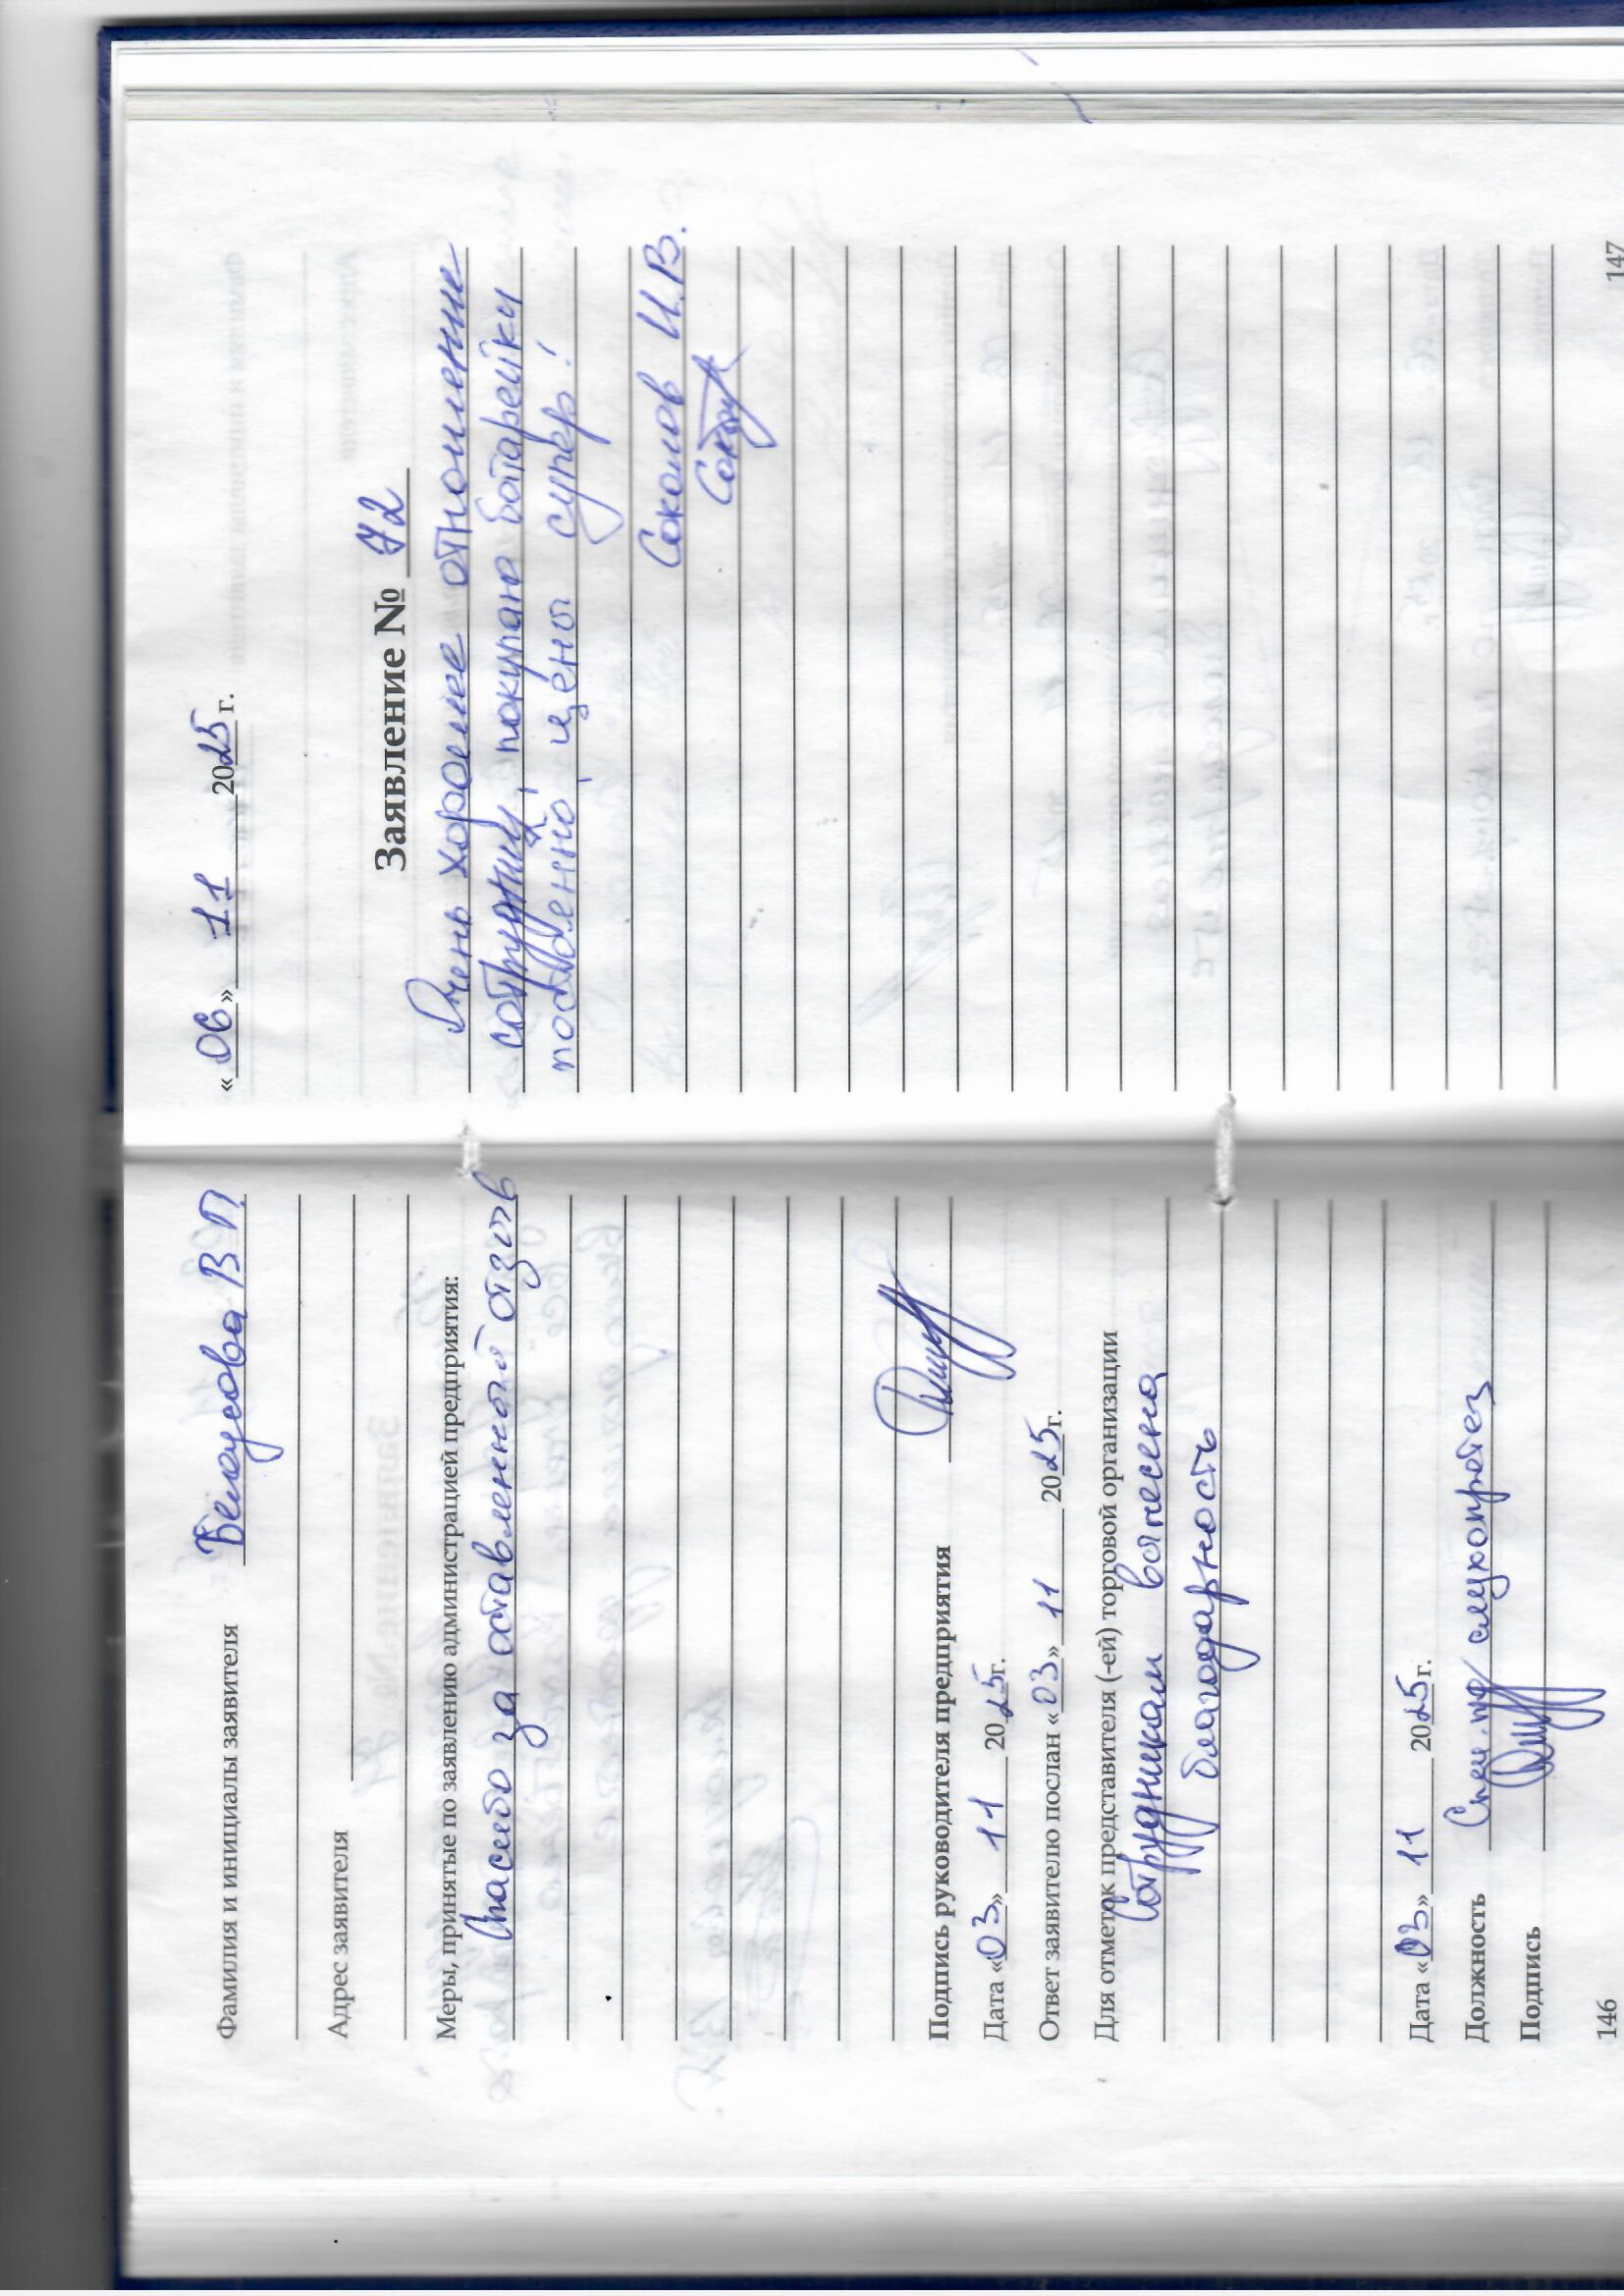 Фамилия и инициалы заявителя Белоусова В П
Адрес заявителя
Меры, принятые по заявлению администрацией предприятия:
Спасибо за оставленный отзыв
Подпись руководителя предприятия
Дата «03» 11 2025г.
Ответ заявителю послан «03» 11 2025г.
Для отметок представителя (-ей) торговой организации
Сотрудникам вынесена
благодарность
Дата «03» 11 2025г.
Должность Спец. по слухопротез
Подпись
146
«06» 11 2025г.
Заявление № 72
Очень хорошее отношение
, покупаю батарейки
постоянно, цены супер!
Соколов И.В.
147